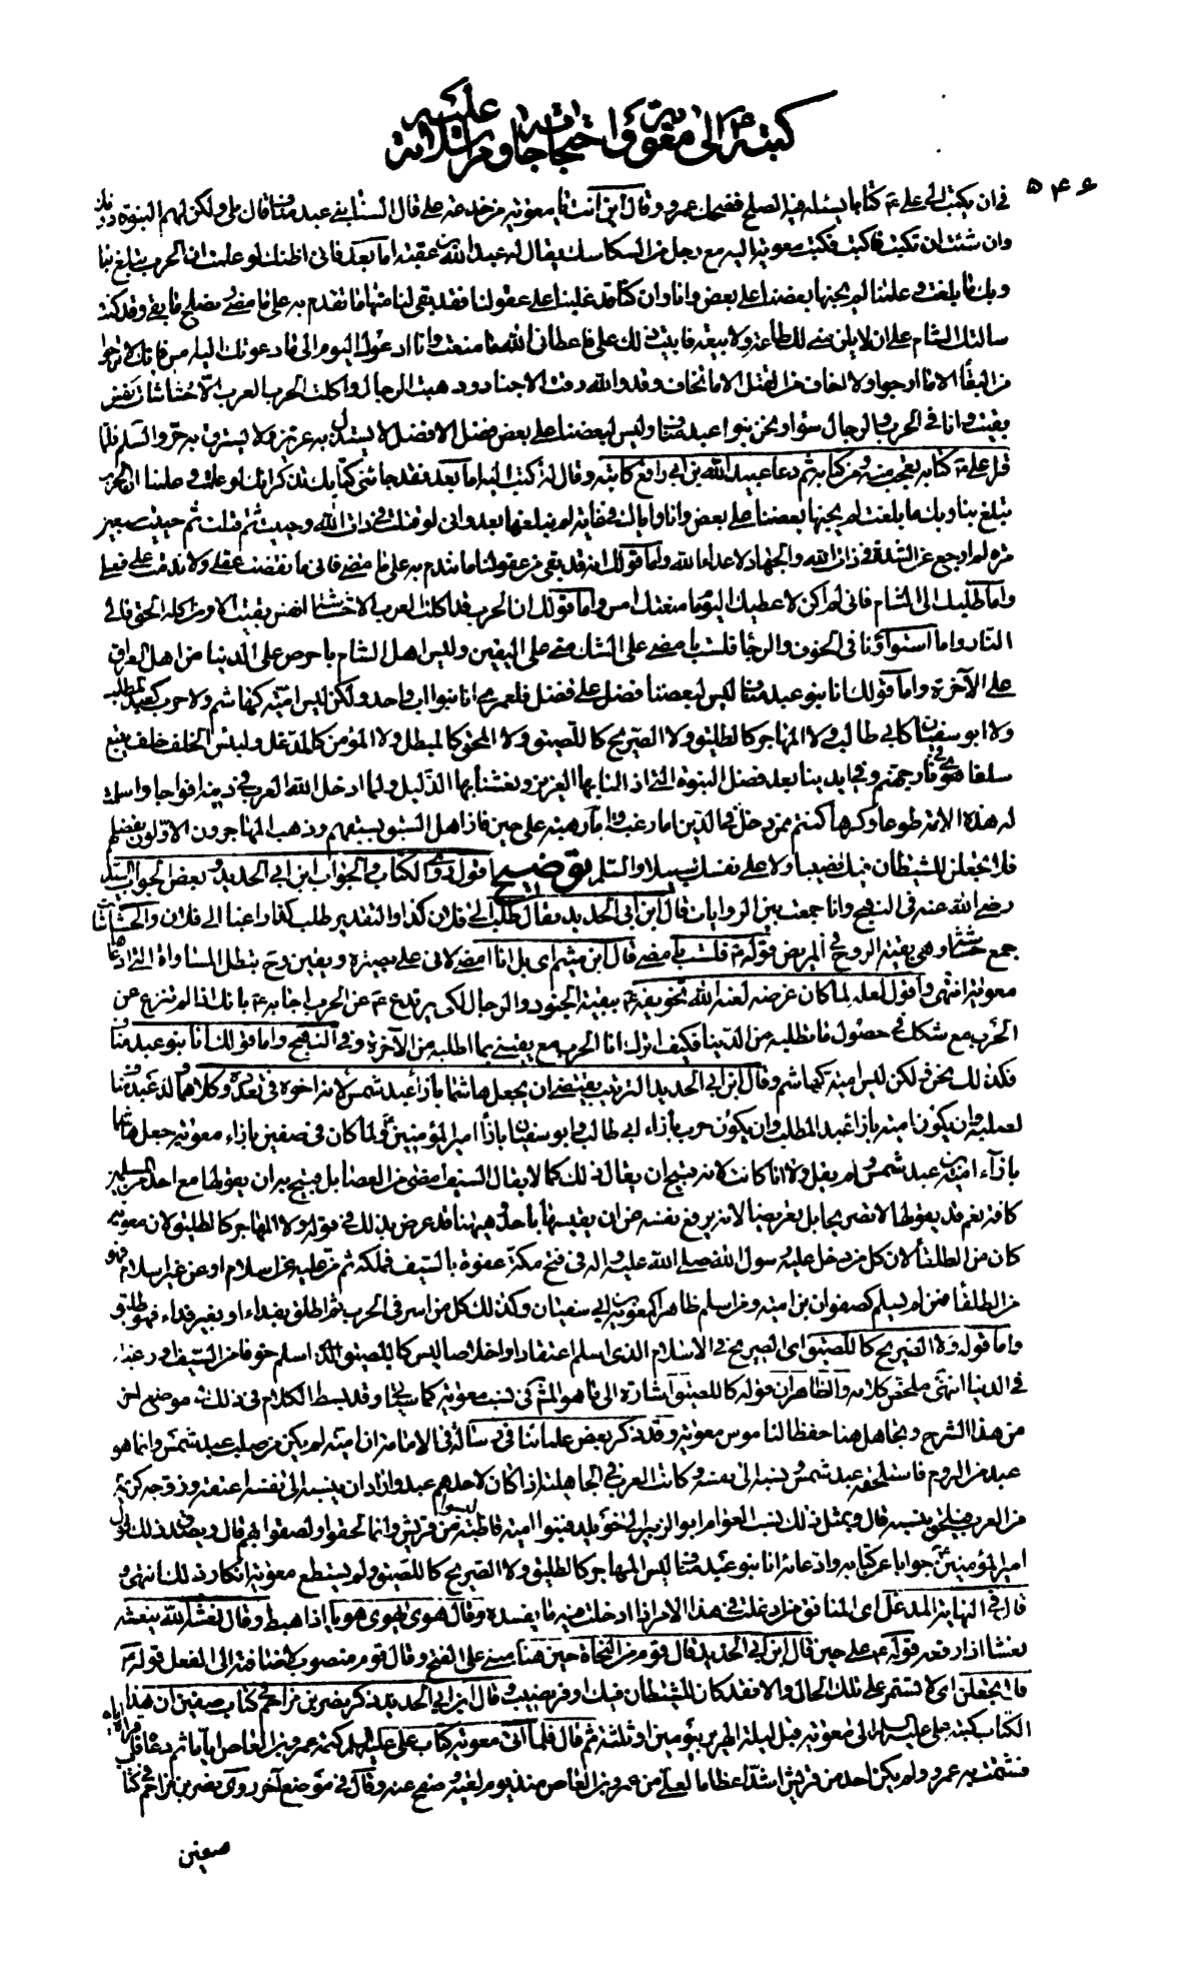 كتبه ع الى معوية و احتجاجاته عليه و مراسلاته
۵۴۶
في ان يكتب الى علي ع كتابا يسئله فيه الصلح فضحك عمرو و قال اين انت يا معوية من خدعة علي قال السنا بني عبد مناف قال بلى ولكن لهم النبوة دونك
وان شئت ان تكتب فاكتب فكتب معوية اليه مع رجل من السكاسك يقال له عبد الله بن عقبة اما بعد فاني اظنك لو علمت ان الحرب تبلغ بنا
وبك ما بلغت وعلمنا لم يجنها بعضنا على بعض وانا وان كنا قد غلبنا على عقولنا فقد بقي لنا منها ما نندم به على ما مضى ونصلح ما بقي وقد كنت
سالتك الشام على ان لا يلزمني لك طاعة ولا بيعة فابيت ذلك علي فاعطاني الله ما منعت وانا ادعوك اليوم الى ما دعوتك اليه امس فانك لا ترجوا
من البقاء الا ما ارجوا ولا اخاف من القتل الا ما تخاف وقد والله رقت الاجناد وذهبت الرجال واكلت الحرب العرب الا حشاشات انفس
بقيت وانا في الحرب والرجال سواء ونحن بنوا عبد مناف وليس لبعضنا على بعض فضل الا فضل لا يستذل به عزيز ولا يسترق به حر والسلم فلما
قرء علي ع كتابه تعجب منه ومن كتابه ثم دعا عبيد الله بن ابي رافع كاتبه وقال له اكتب اليه اما بعد فقد جائني كتابك تذكر انك لو علمت وعلمنا ان الحرب
تبلغ بنا وبك ما بلغت لم يجنها بعضنا على بعض وانا واياك في غاية لم نبلغها بعد واني لو قتلت في ذات الله وحييت ثم قتلت ثم حييت سبعين
مرة لم ارجع عن الشدة في ذات الله والجهاد لاعداء الله واما قولك انه قد بقي من عقولنا ما نندم به على ما مضى فاني ما نقضت عقلي ولا ندمت على فعلي
واما طلبك الى الشام فاني لم اكن لاعطيك اليوم ما منعتك امس واما قولك ان الحرب قد اكلت العرب الا حشاشات انفس بقيت الا ومن اكله الحق فالى
النار واما استواؤنا في الخوف والرجا فلست بامضى على الشك مني على اليقين وليس اهل الشام باحرص على الدنيا من اهل العراق
على الآخرة واما قولك انا بنو عبد مناف ليس لبعضنا فضل على فضل فلعمري انا بنوا اب واحد ولكن ليس امية كهاشم ولا حرب كعبد المطلب
ولا ابو سفيان كابي طالب ولا المهاجر كالطليق ولا الصريح كاللصيق ولا المحق كالمبطل ولا المؤمن كالمدغل ولبئس الخلف خلف يتبع
سلفا هوى في نار جهنم وفي ايدينا بعد فضل النبوة التي اذللنا بها العزيز ونعشنا بها الذليل ولما ادخل الله العرب في دينه افواجا واسلمت
له هذه الامة طوعا وكرها كنتم ممن دخل في الدين اما رغبة واما رهبة على حين فاز اهل السبق بسبقهم وذهب المهاجرون الاولون بفضلهم
فلا تجعلن للشيطان فيك نصيبا ولا على نفسك سبيلا والسلم توضيح اقول روى الكتاب والجواب ابن ابي الحديد وبعض الجواب السيد
رضي الله عنه في النهج وانا جمعت بين الروايات قال ابن ابي الحديد يقال طلبت الى فلان كذا والتقدير طلب كذا راغبا الى فلان والحشاشات
جمع حشاشة وهي بقية الروح في المريض قوله ع فلست بامضى قال ابن ميثم اي بل انا امضى لاني على بصيرة ويقين وح يبطل المساواة التي ادعاها
معوية انتهى واقول لعله لما كان غرضه لعنه الله تخويفه ع ببقية الجنود والرجال لكي يرتدع ع عن الحرب اجابه ع بانك اذا لم تنزع عن
الحرب مع شكك في حصول ما تطلبه من الدنيا فكيف اترك انا الحرب مع يقيني بما اطلبه من الآخرة وفي النهج واما قولك انا بنو عبد مناف
فكذلك نحن ولكن ليس امية كهاشم وقال ابن ابي الحديد الترتيب يقتضي ان يجعل هاشما بازاء عبد شمس لانه اخوه في قعدد وكلاهما ولد عبد مناف
لصلبه وان يكون امية بازاء عبد المطلب وان يكون حرب بازاء ابي طالب وابو سفيان بازاء امير المؤمنين ع ولما كان في صفين بازاء معوية جعل هاشما
بازاء امية بن عبد شمس ولم يقل ولا انا كانت لانه قبيح ان يقال ذلك كما لا يقال السيف امضى من العصا بل قبيح به ان يقولها مع احد من المسلمين
كافة نعم قد يقولها لا تصريحا بل تعريضا لانه يرفع نفسه عن ان يقيسها باحد وهيهنا قد عرض بذلك في قوله ولا المهاجر كالطليق لان معوية
كان من الطلقاء لان كل من دخل عليه رسول الله صلى الله عليه واله في فتح مكة عفوة بالسيف فملكه ثم من عليه عن اسلام او عن غير اسلام فهو
من الطلقاء ممن لم يسلم كصفوان بن امية ومن اسلم ظاهرا كمعوية بن ابي سفيان وكذلك كل من اسر في الحرب ثم اطلق بفداء او بغير فداء فهو طليق
واما قوله ولا الصريح كاللصيق اى الصريح في الاسلام الذي اسلم اعتقادا واخلاصا ليس كاللصيق الذي اسلم خوفا من السيف او رغبة
في الدنيا انتهى ملخص كلامه والظاهر ان قوله كاللصيق اشارة الى ما هو المشهور في نسب معوية كما سياتي وقد بسط الكلام في ذلك في موضع اخر
من هذا الشرح وتجاهل هنا حفظا لناموس معوية وقد ذكر بعض علمائنا في رسالة في الامامة ان امية لم يكن من صلب عبد شمس وانما هو
عبد من الروم فاستلحقه عبد شمس ونسبه الى نفسه وكانت العرب في الجاهلية اذا كان لاحدهم عبد واراد ان ينسبه الى نفسه اعتقه وزوجه كريمة
من العرب فيلحق بنسبه قال وبمثل ذلك نسب العوام ابو الزبير الى خويلد فبنوا امية قاطبة ليسوا من قريش وانما لحقوا ولصقوا بهم قال ويصدق ذلك قول
امير المؤمنين ع جوابا عن كتابه وادعائه انا بنو عبد مناف ليس المهاجر كالطليق ولا الصريح كاللصيق ولم يستطع معوية انكار ذلك انتهى و
قال في النهاية المدغل اى المنافق من ادغلت في هذا الامر اذا ادخلت فيه ما يفسده وقال هوى يهوى هويا اذا هبط وقال نعشه الله ينعشه
نعشا اذا رفعه قوله ع على حين قال ابن ابي الحديد قال قوم من النحاة حين هنا مبني على الفتح وقال قوم منصوب لاضافته الى الفعل قوله ع
فلا تجعلن اى لا تستمر على تلك الحال والا فقد كان للشيطان فيك اوفر نصيب وقال ابن ابي الحديد ذكر نصر بن مزاحم في كتاب صفين ان هذا
الكتاب كتبه علي عليه السلام الى معوية قبل ليلة الهرير بيومين او ثلثة ثم قال فلما اتى معوية كتاب علي عليه السلام كتمه عمرو بن العاص اياما ثم دعاه فاقراه اياه
فشمت به عمرو ولم يكن احد من قريش اشد اعظاما لعلي من عمرو بن العاص منذ يوم لقيه وصفح عنه وقال في موضع آخر روى نصر بن مزاحم في كتاب
صفين